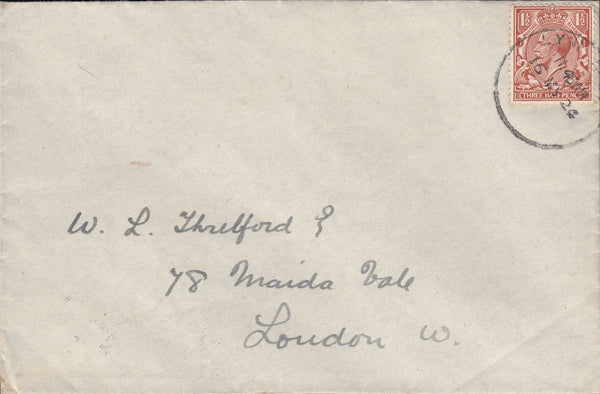 1½ 1½
THREE HALFPENCE
16 24
W. L. Threlford
78 Maida Vale
London W.